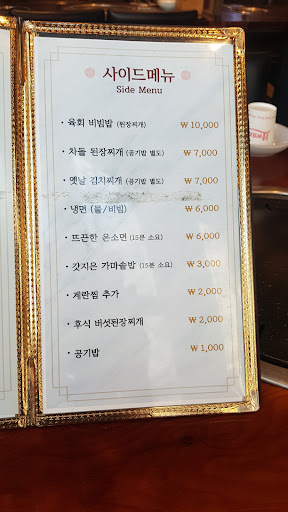 사이드메뉴
Side Menu
· 육회 비빔밥 (된장찌개) ₩ 10,000
· 차돌 된장찌개 (공기밥 별도) ₩ 7,000
· 옛날 김치찌개 (공기밥 별도) ₩ 7,000
· 냉면 (물/비빔) ₩ 6,000
· 뜨끈한 온소면 (15분 소요) ₩ 6,000
· 갓지은 가마솥밥 (15분 소요) ₩ 3,000
· 계란찜 추가 ₩ 2,000
· 후식 버섯된장찌개 ₩ 2,000
· 공기밥 ₩ 1,000